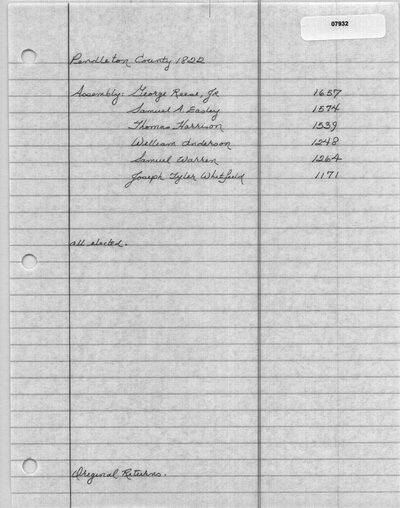 07932
Pendleton County 1822
Assembly: George Reese, Jr 1657
Samuel A Easley 1574
Thomas Harrison 1539
William Anderson 1248
Samuel Warren 1264
Joseph Tyler Whitfield 1171
all elected.
Original Returns.